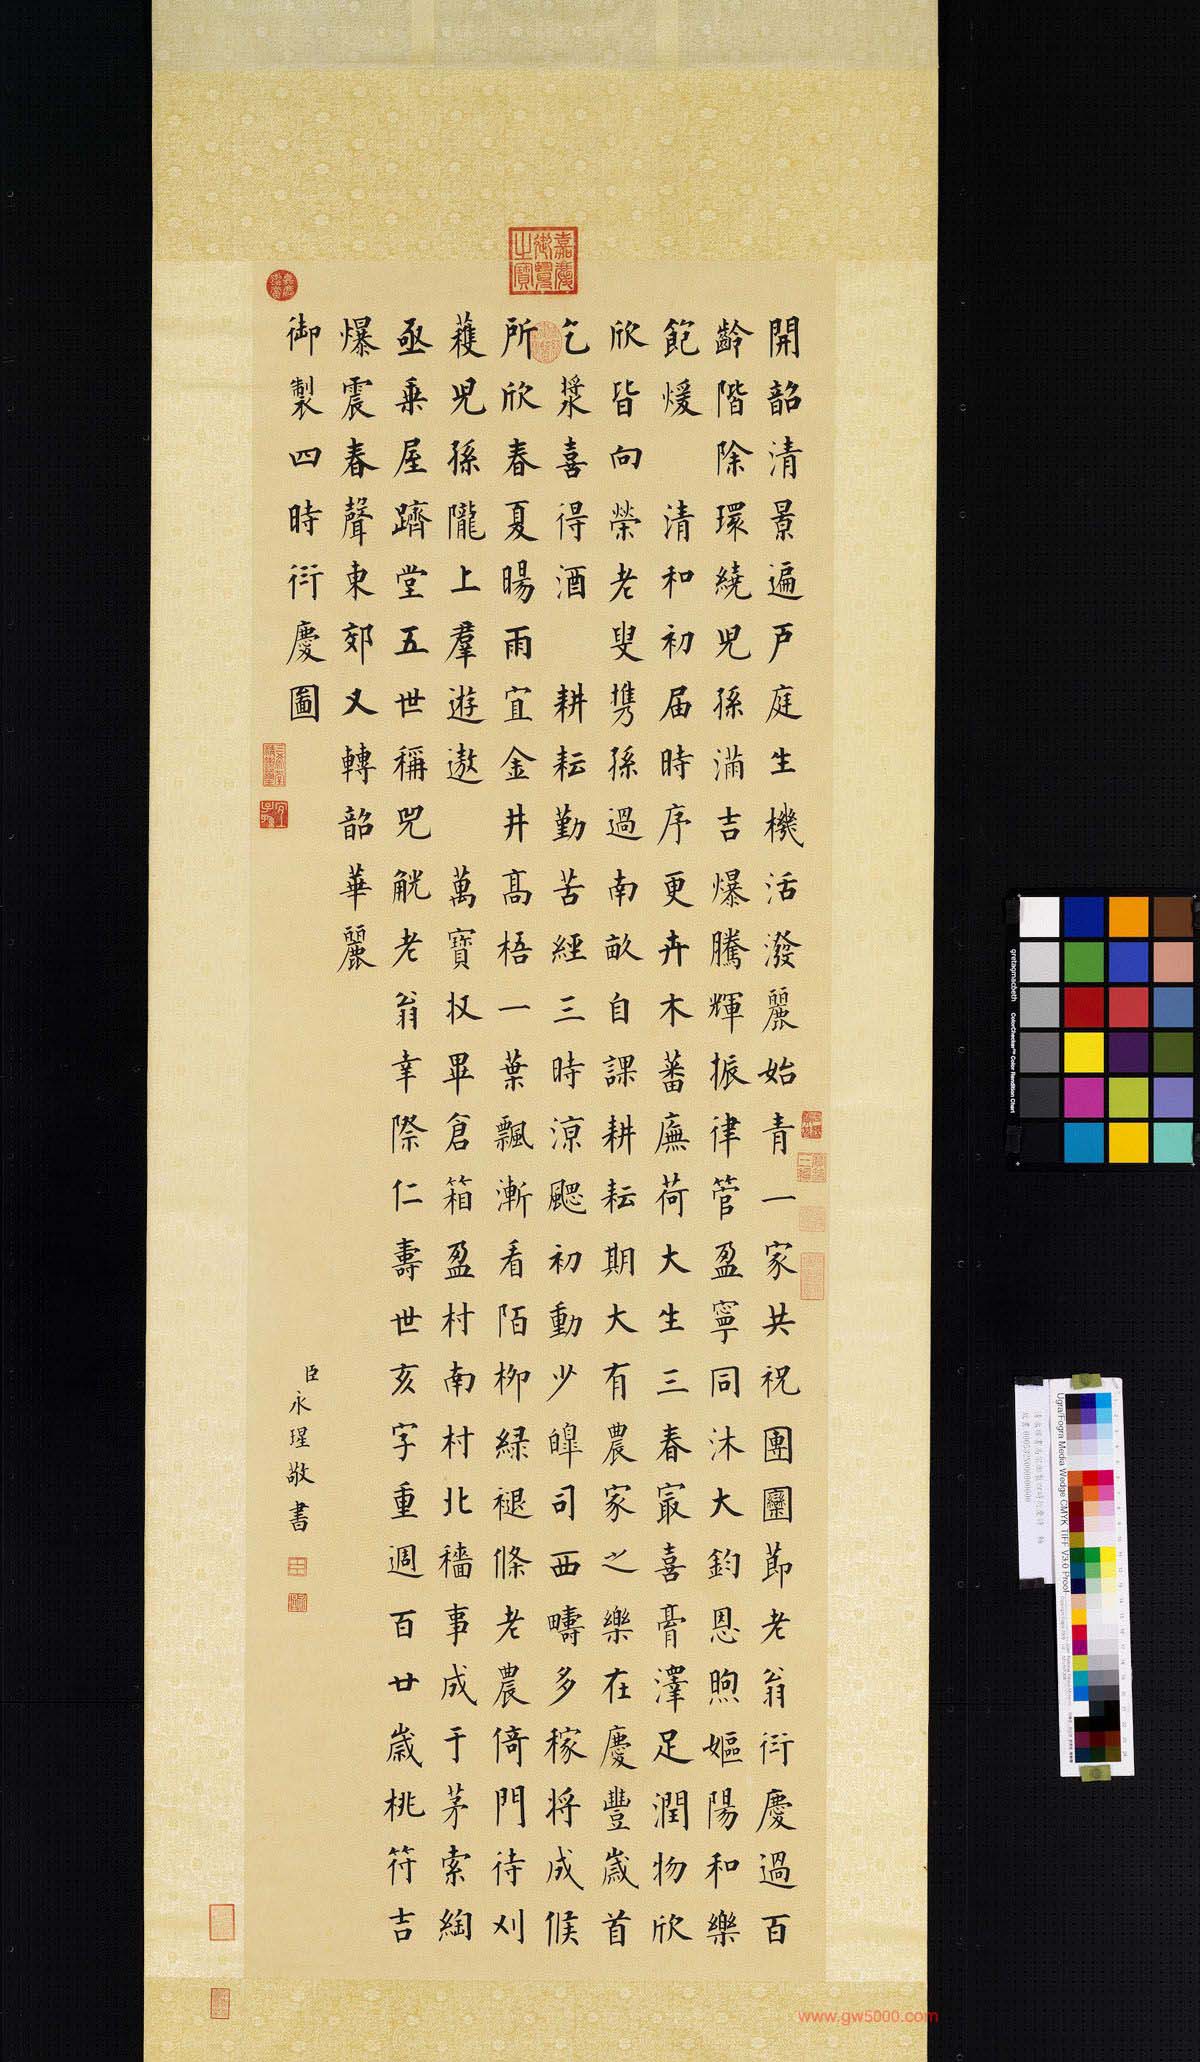 開韶清景遍戶庭生機活潑麗始青一家共祝團圞節老翁衍慶過百
齡階除環繞兒孫滿吉爆騰輝振律管盈寧同沐大鈞恩煦嫗陽和樂
飽煖 清和初届時序更卉木蕃廡荷大生三春冣喜膏澤足潤物欣
欣皆向榮老叟携孫過南畝自課耕耘期大有農家之樂在慶豐歲首
乞漿喜得酒 耕耘勤苦經三時涼颸初動少皥司西疇多稼將成候
所欣春夏暘雨宜金井高梧一葉飄漸看陌柳綠褪條老農倚門待刈
蒦兒孫隴上羣遊遨 萬寶收畢倉箱盈村南村北穡事成于茅索綯
亟乗屋躋堂五世稱兕觥老翁幸際仁壽世亥字重週百廿歲桃符吉
爆震春聲東郊又轉韶華麗
御製四時衍慶圖
臣永瑆敬書
嘉慶御覽之寶
www.gw5000.com
gretagmacbeth
ColorChecker Color Rendition Chart
Ugra/Fogra Media Wedge CMYK TIFF V3.0 Proof